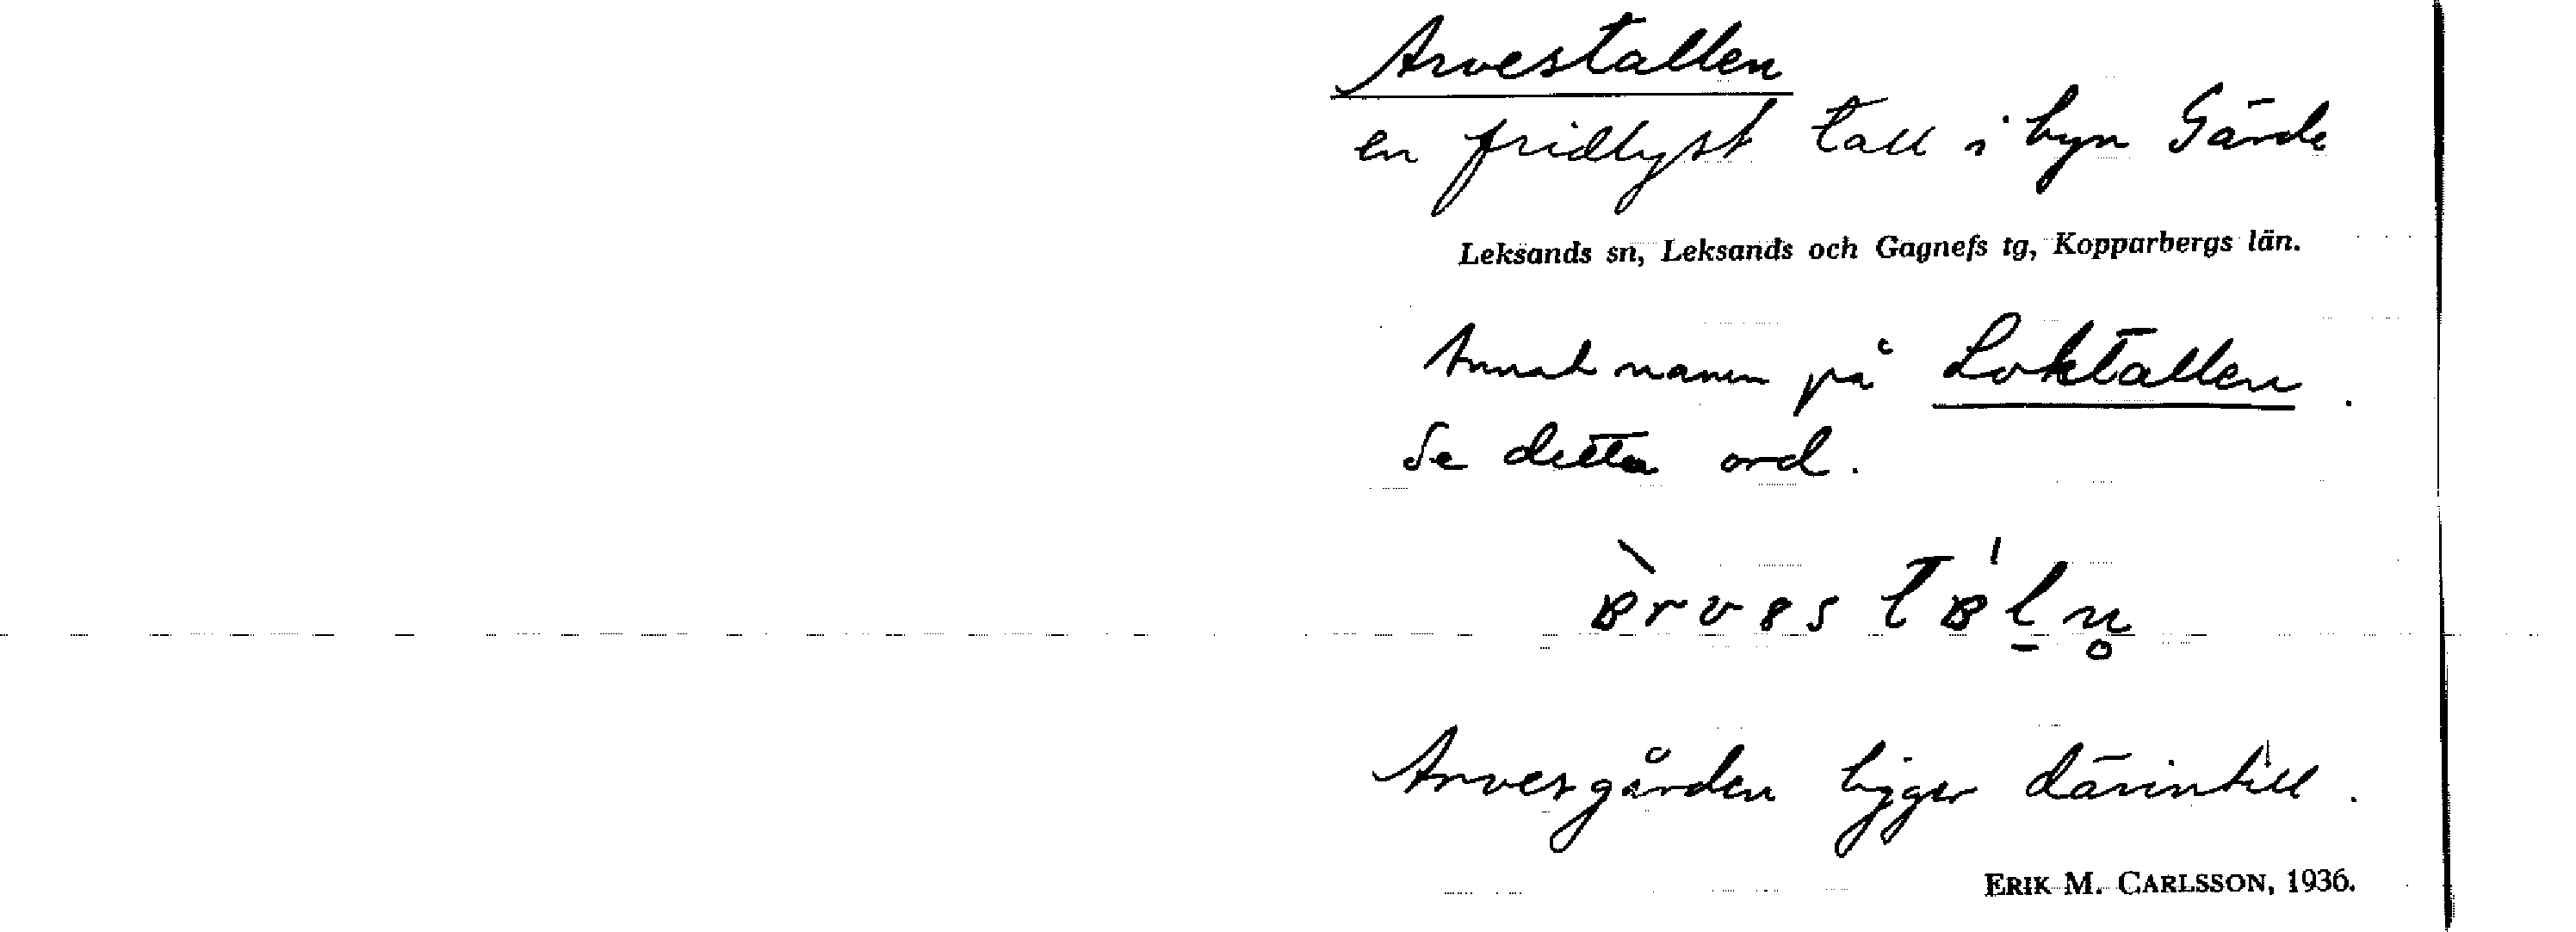 Arvestallen
en fridlyst tall i byn Gärde
Leksands sn, Leksands och Gagnefs tg, Kopparbergs län.
Annat namn på Loktallen.
Se detta ord.
Arvesgården ligger därintill.
ERIK M. CARLSSON, 1936.